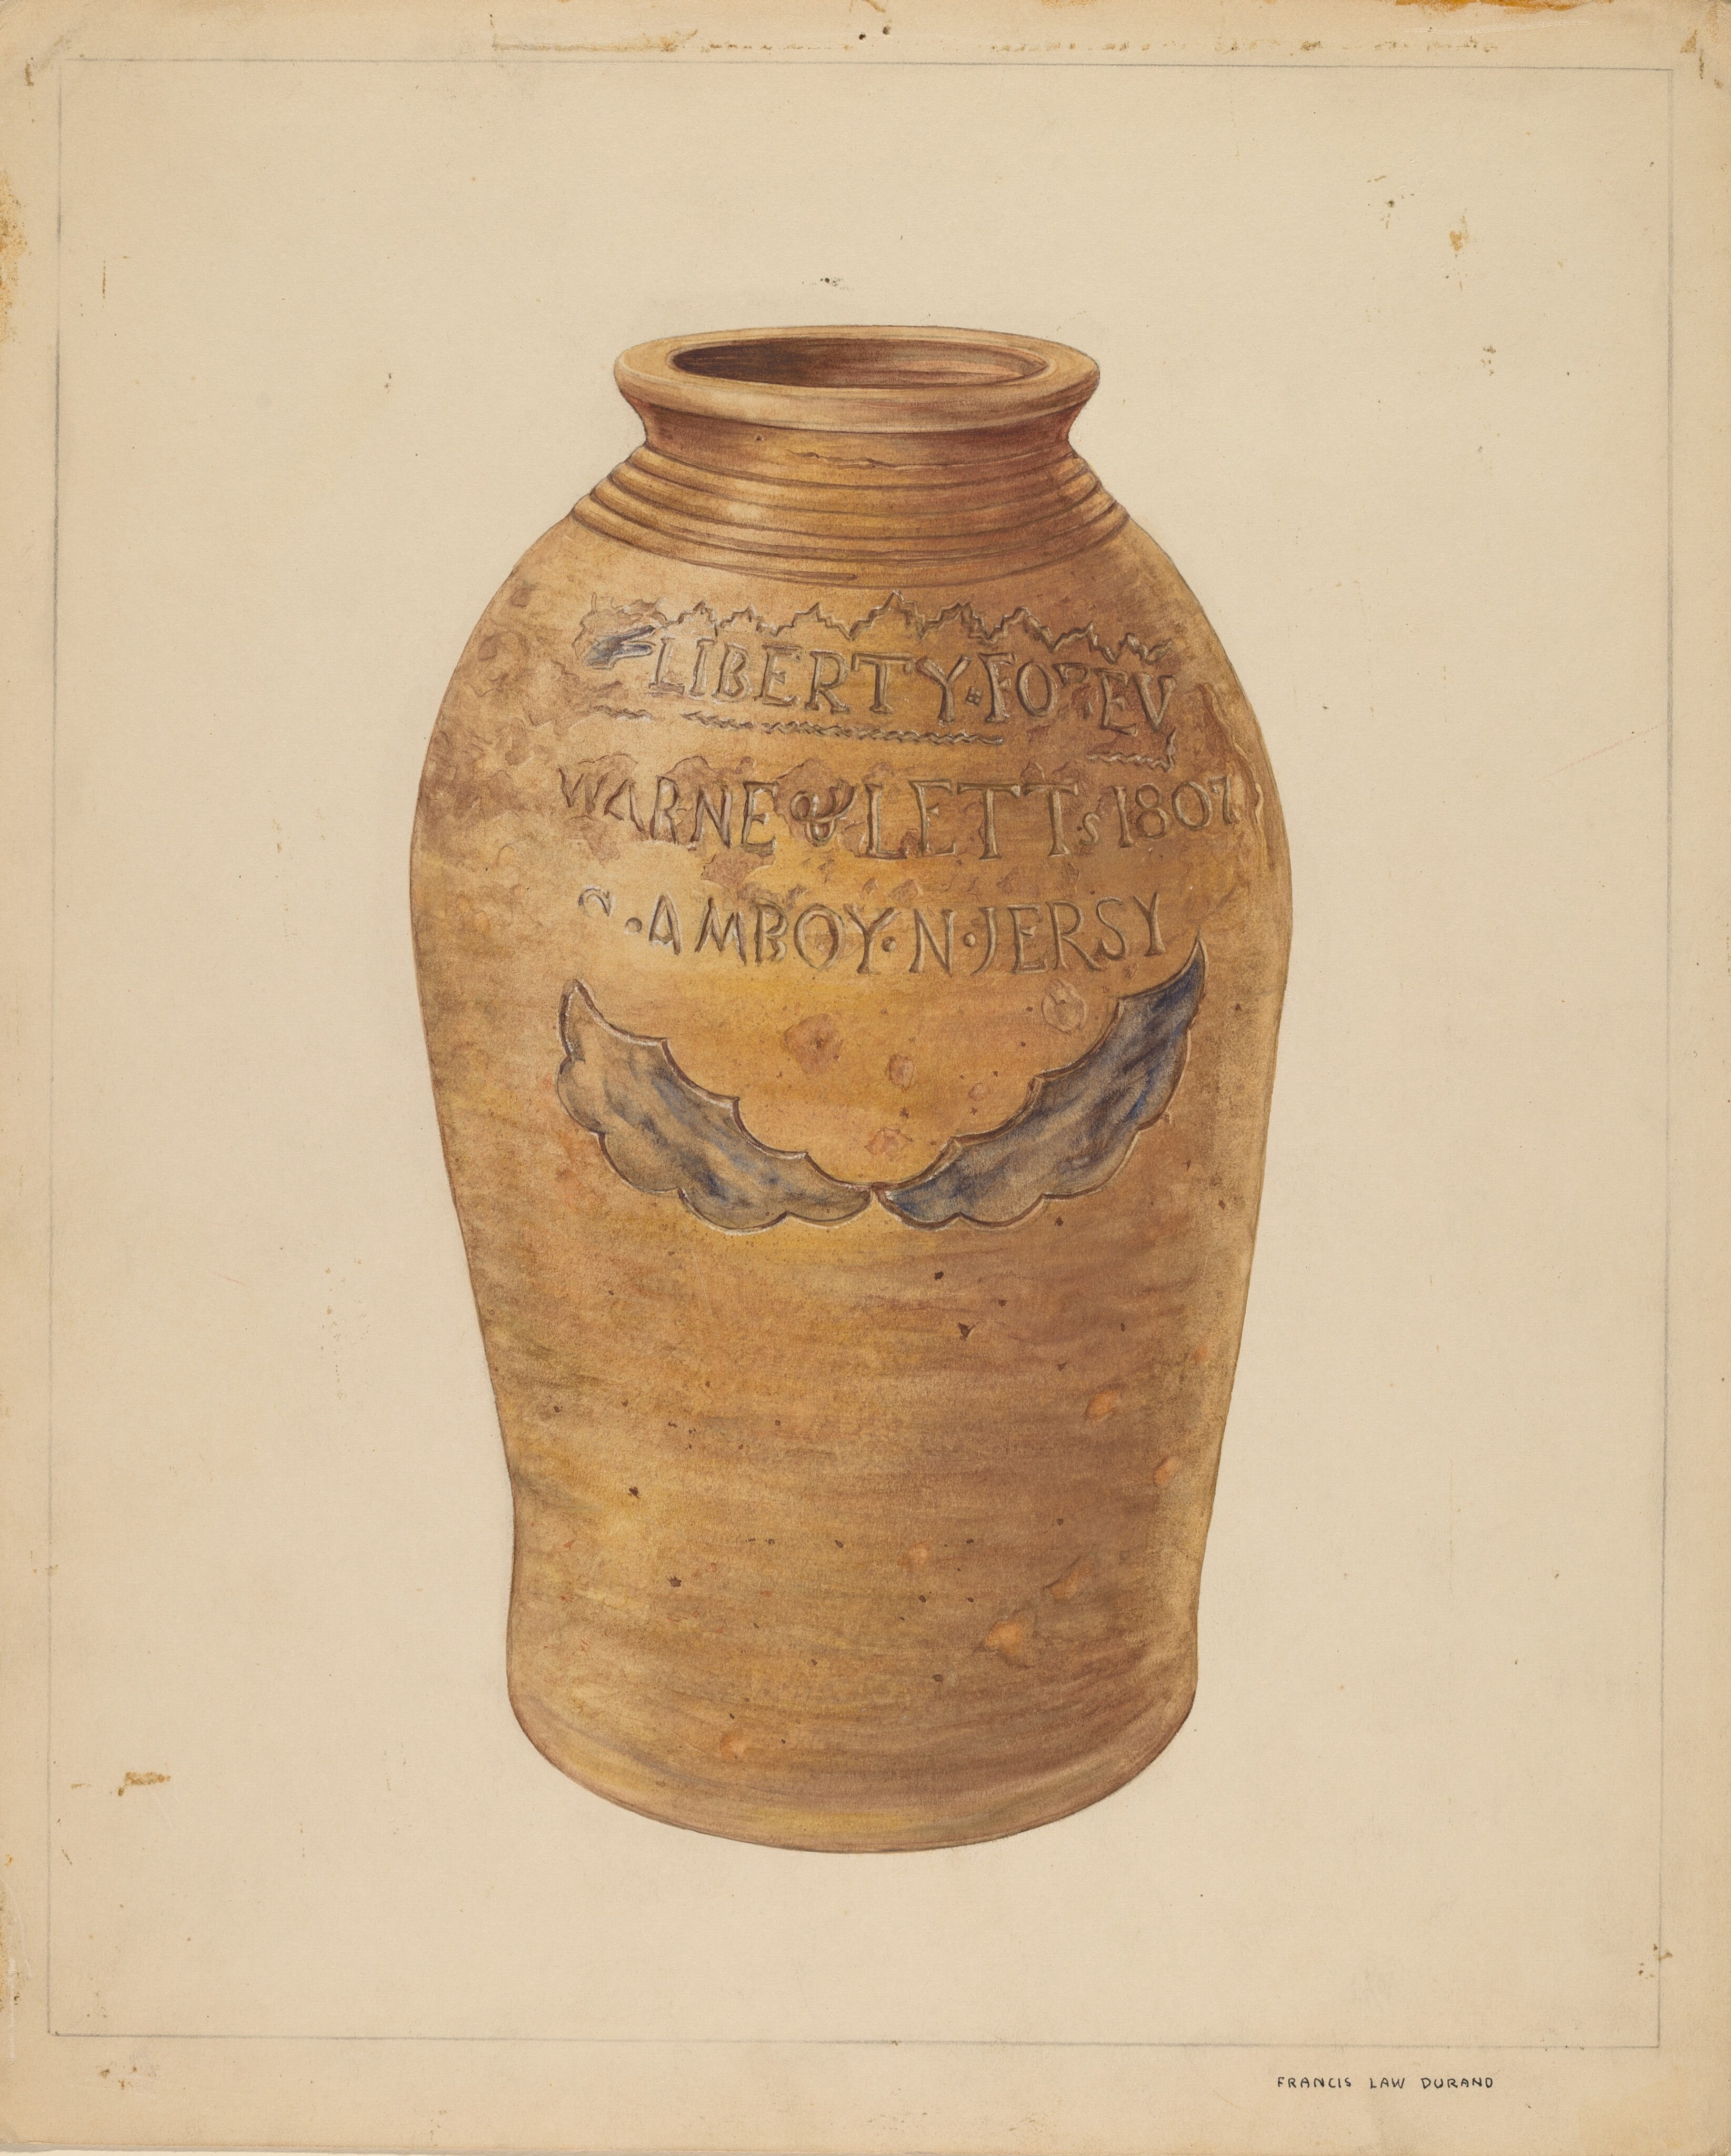 LIBERTY·FOR EV
WARNE & LETTs 1807
S·AMBOY·N·JERSY
FRANCIS LAW DURAND